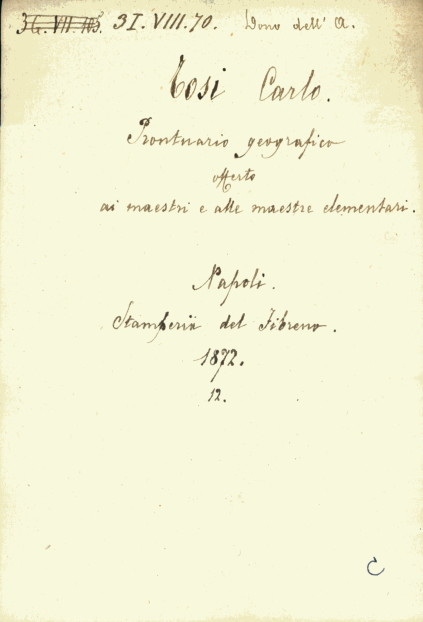 3 I. VIII. 70. Dono dell' A.
Tosi Carlo.
Prontuario geografico
offerto
ai maestri e alle maestre elementari.
Napoli.
Stamperia del Fibreno.
1872.
12.
C